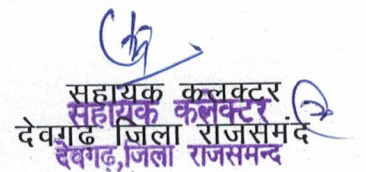 सहायक कलक्टर
सहायक कलेक्टर
देवगढ़ जिला राजसमंद
देवगढ़,जिला राजसमन्द